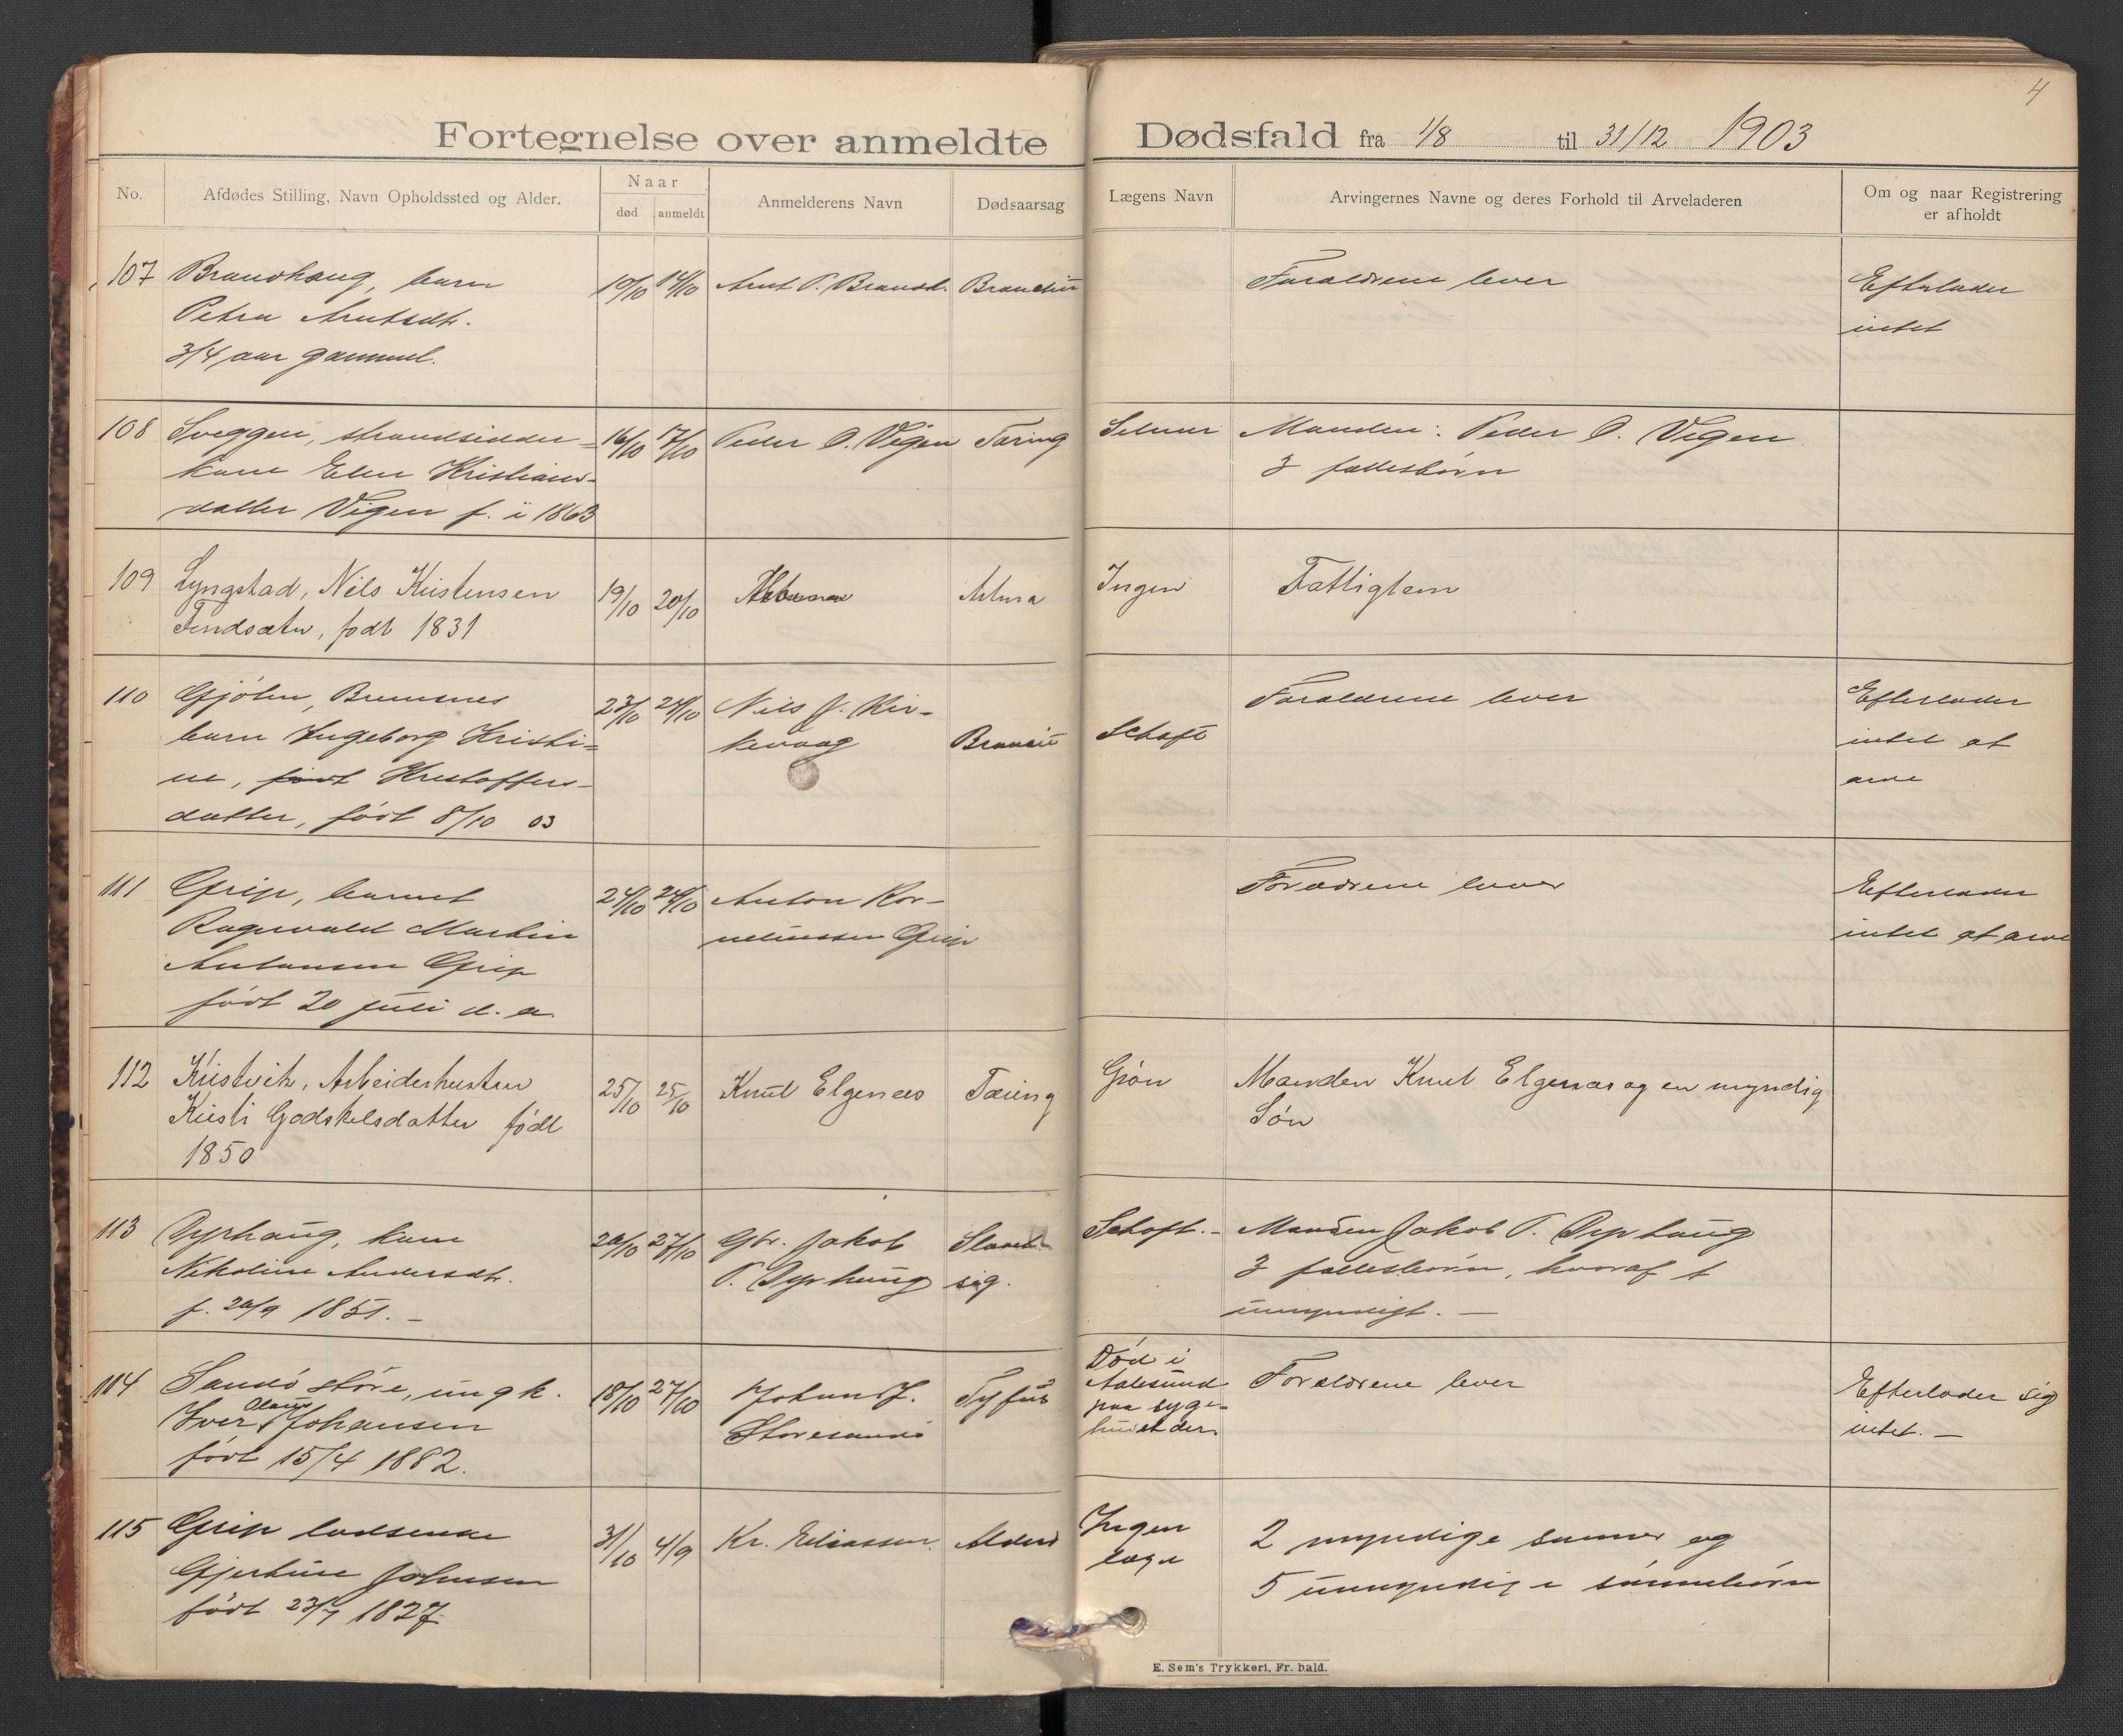 4
Fortegnelse over anmeldte Dødsfald fra 1/8 til 31/12 1903
No.
Afdødes Stilling, Navn Opholdssted og Alder.
Naar
død
anmeldt
Anmelderens Navn
Dødsaarsag
Lægens Navn
Arvingernes Navne og deres Forhold til Arveladeren
Om og naar Registrering
er afholdt
107 Brandhaug, barn
Petra Arntsdtr.
3/4 aar gammel.
10/10 14/10
Arnt P. Brandh.
Forældrene lever
Efterlader
intet
108 Sveggen, strandsidder-
kone Elen Kristians-
datter Vigen f. i 1863
16/10 17/10
Peder O. Vigen
Tæring
Selmer
Manden: Peder O. Vigen
3 fællesbørn
109 Lyngstad, Nils Kristensen
Tendsæter, født 1831
19/10 20/10
Astma
Ingen
Fattiglem
110 Gjølen, Bremsnes
barn Ingeborg Kristi=
ne, født Kristoffers-
datter, født 8/10 03
23/10 24/10
Nils J. Kir-
kevaag
Schøft
Forældrene lever
Efterlader
intet at
arve
111 Grip, barnet
Ragnvald Martin
Antonsen Grip
født 20 juli d. a.
24/10 24/10
Anton Kor-
neliussen Grip
Forældrene lever
Efterlader
intet at arve
112 Kristvik, Arbeiderhustru
Kirsti Godskelsdatter født
1850
25/10 25/10
Knut Elgenes
Tæring
Grøn
Manden Knut Elgenæs og en myndig
Søn
113 Dyrhaug, kone
Nikoline Andersdtr.
f. 26/9 1851. –
26/10 27/10
Gbr. Jakob
P. Dyrhaug
sig.
Schøft. –
Manden Jakob P. Dyrhaug
3 fællesbørn, hvoraf 1
umyndigt. –
114 Sandø støre, ungk.
Olaus
Iver Johansen
født 15/4 1882.
18/10 27/10
Johan J.
Storesandø
Tyfus
Død i
Aalesund
paa syge-
huset der.
Forældrene lever
Efterlader sig
intet. –
115 Grip lodsenke
Gjertine Johnsen
født 23/7 1827
31/10 4/9
Kr. Eliassen.
Alderd
Ingen
læge
2 myndige sønner og
5 umyndige sønnebørn
E. Sem's Trykkeri, Fr. hald.